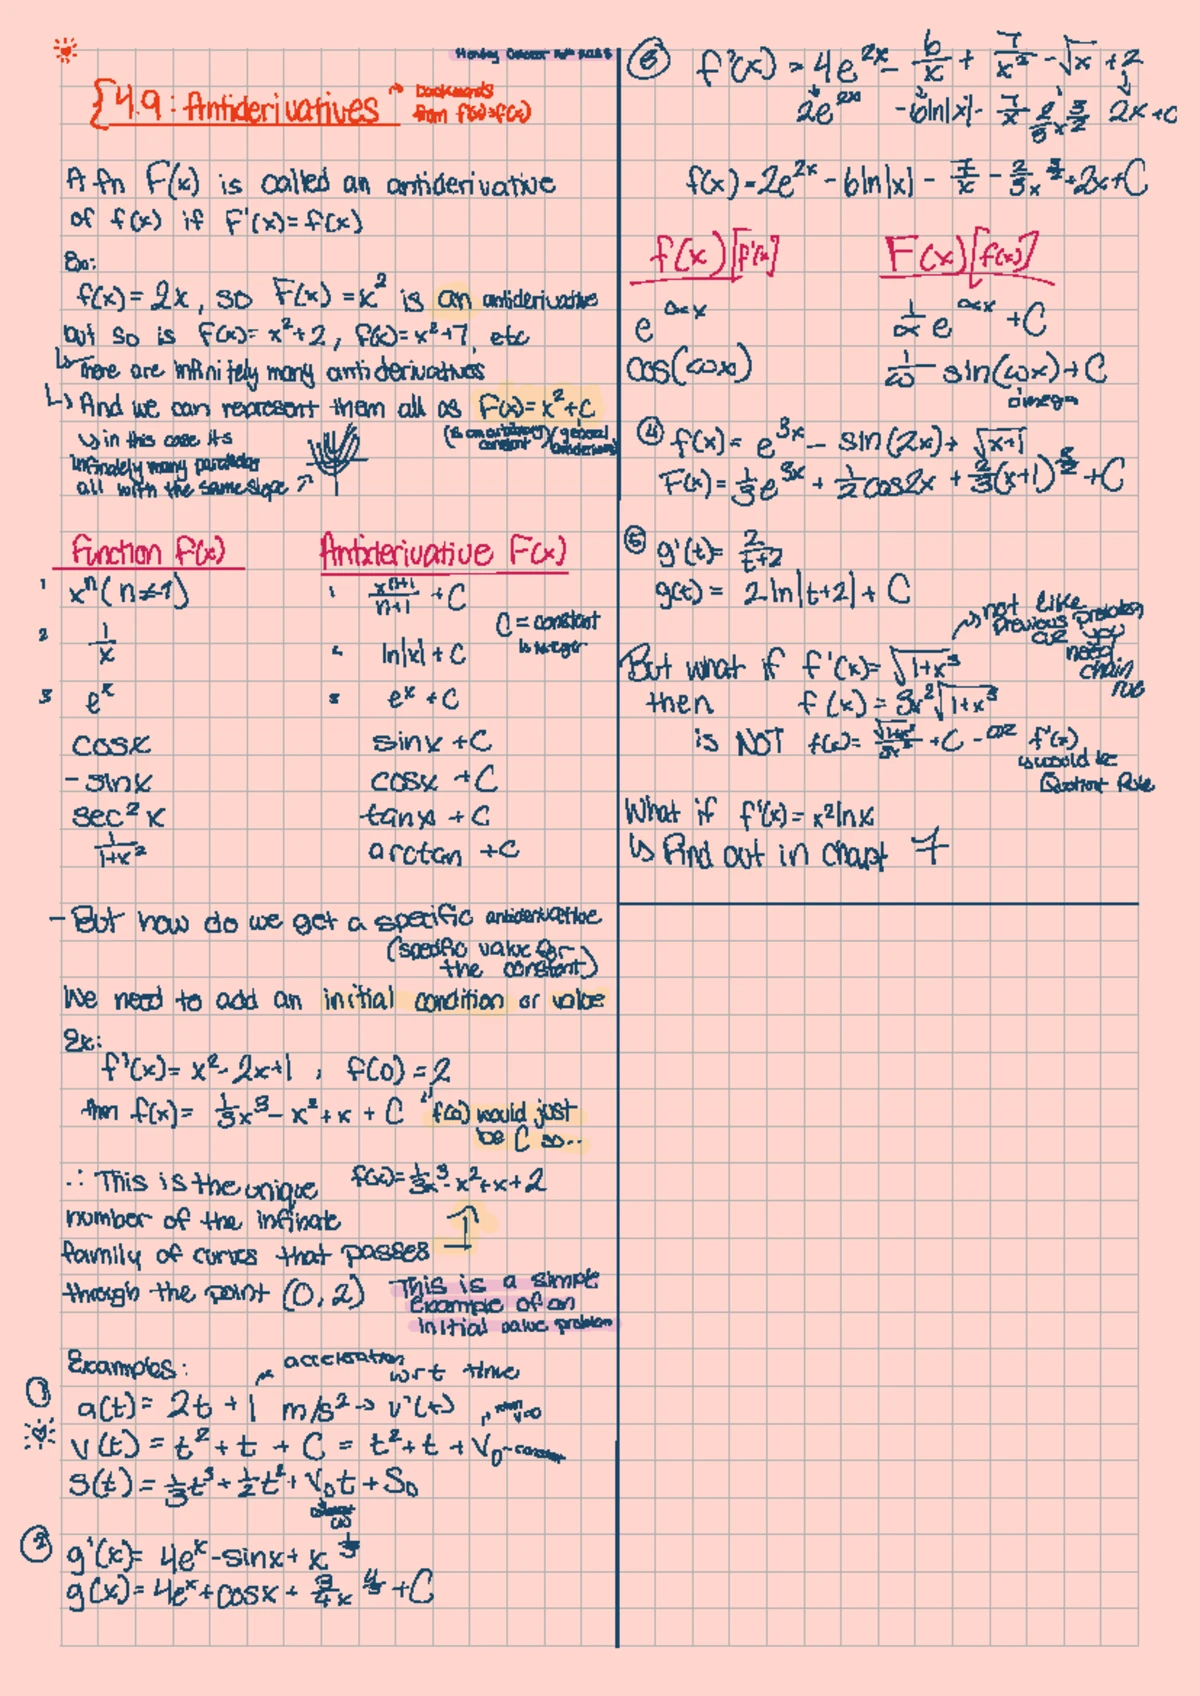 {4.9: Antiderivatives → backwards
from f'(x)→f(x)
A fn F(x) is called an antiderivative
of f(x) if F'(x)=f(x)
Ex:
f(x)= 2x, so F(x) = x² is an antiderivative
but so is F(x)= x²+2, F(x)= x²+7, etc
↳ There are infinitely many antiderivatives
↳ And we can represent them all as F(x)= x²+C
↳ in this case its
infinitely many parabolas
all with the same slope ↗
(general
Function F(x) Antiderivative F(x)
1 xⁿ (n≠-1) 1 xⁿ⁺¹/n+1 + C
C = constant
2 1/x 2 ln|x| + C
↳ integer
3 eˣ 3 eˣ + C
cosx sinx + C
-sinx cosx + C
sec²x tanx + C
1/1+x² arctan + C
- But how do we get a specific antiderivative
(specific value for
the constant)
We need to add an initial condition or value
Ex:
f'(x)= x²- 2x+1 , f(0) = 2
then f(x)= 1/3x³ - x² + x + C f(0) would just
be C so...
∴ This is the unique f(x)= 1/3x³- x²+x+2
number of the infinate
family of curves that passes
through the point (0,2) This is a simple
example of an
initial value problem
Examples: acceleration
wrt time
① a(t)= 2t + 1 m/s² → v'(t)
v(t) = t² + t + C = t² + t + V₀ - constant
S(t) = 1/3t³ + 1/2t² + V₀t + S₀
② g'(x)= 4eˣ - sinx + x^1/3
g(x)= 4eˣ + cosx + 3/4x^4/3 + C
③ f'(x) = 4e²ˣ - 6/x + 7/x² - √x + 2
2e²ˣ -6ln|x| - 7/x 2/3x^3/2 2x+C
f(x) = 2e²ˣ - 6ln|x| - 7/x - 2/3x^3/2 + 2x + C
f(x) [f'(x)] F(x) [f(x)]
e^∝x 1/∝ e^∝x + C
cos(ωx) 1/ω sin(ωx) + C
omega
④ f(x) = e³ˣ - sin(2x) + √x+1
F(x) = 1/3e³ˣ + 1/2cos2x + 2/3(x+1)^3/2 + C
⑤ g'(t)= 2/t+2
g(t) = 2ln|t+2| + C
→ not like
previous problems
cuz you
need
chain
rule
But what if f'(x)= √1+x³
then f(x) = 3x²√1+x³
is NOT f(x)= √1+x³/3x² + C - cuz f'(x)
↳ would be
Quotient Rule
What if f'(x) = x²lnx
↳ Find out in chapt 7